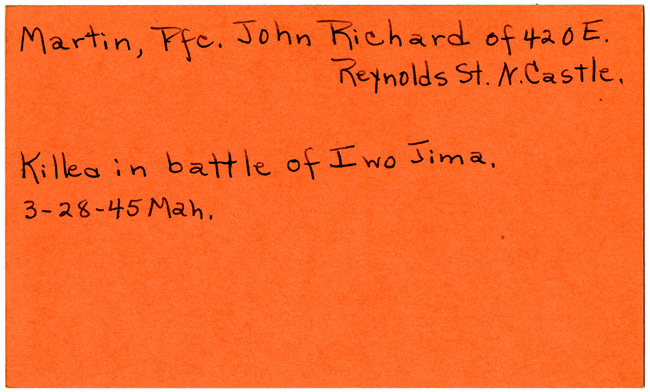 Martin, Pfc. John Richard of 420 E.
Reynolds St. N. Castle.
Killed in battle of Iwo Jima.
3-28-45 Mah.